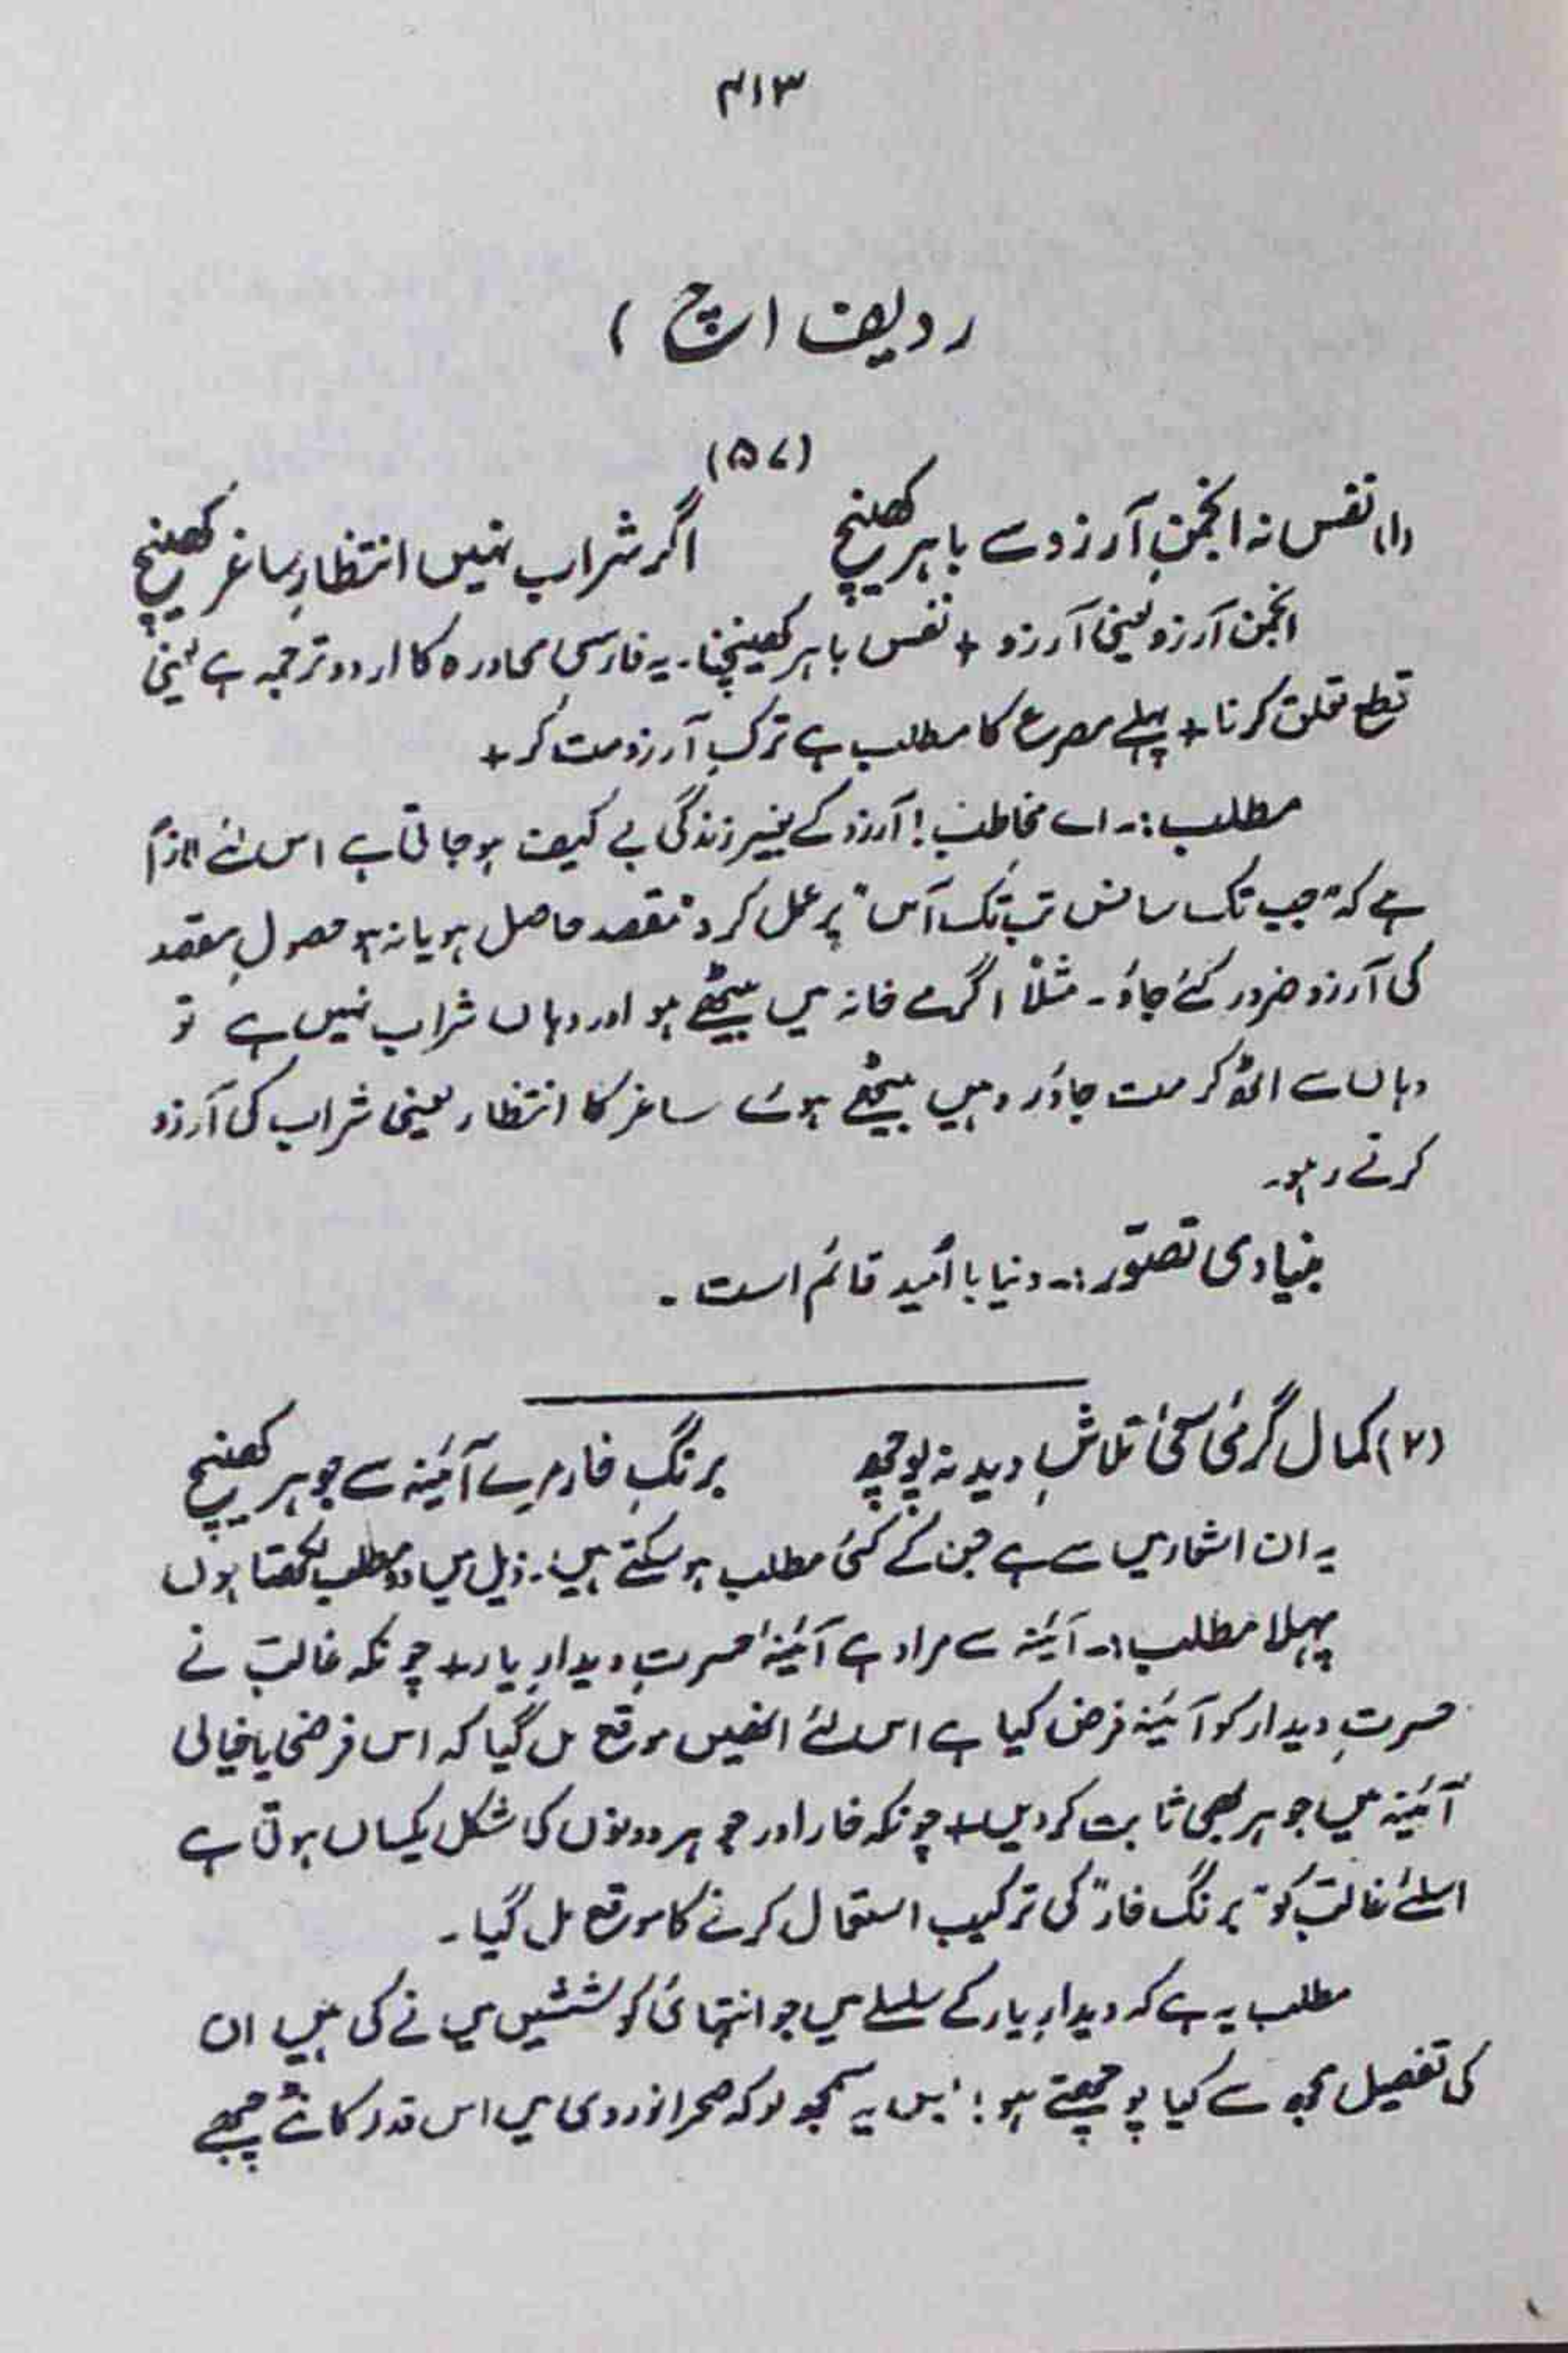 ۴۱۳
ردیف (چ)
(۵۷)
(۱) نفس نہ انجمنِ آرزو سے باہر کھینچ اگر شراب نہیں انتظارِ ساغر کھینچ
انجمن آرزو یعنی آرزو + نفس باہر کھینچنا۔ یہ فارسی محاورہ کا اردو ترجمہ ہے یعنی
قطع تعلق کرنا + پہلے مصرع کا مطلب ہے ترکِ آرزو مت کر +
مطلب:۔ اے مخاطب! آرزو کے بغیر زندگی بے کیف ہو جاتی ہے اس لئے لازم
ہے کہ "جب تک سانس تب تک آس" پر عمل کرو مقصد حاصل ہو یا نہ ہو حصولِ مقصد
کی آرزو ضرور کئے جاؤ۔ مثلاً اگر مے خانہ میں بیٹھے ہو اور وہاں شراب نہیں ہے تو
وہاں سے اٹھ کر مت جاؤ، وہیں بیٹھے ہوئے ساغر کا انتظار یعنی شراب کی آرزو
کرتے رہو۔
بنیادی تصوّر:۔ دنیا با اُمید قائم است۔
(۲) کمالِ گرمیٔ سعیٔ تلاشِ دید نہ پوچھ برنگِ خار مرے آئینہ سے جوہر کھینچ
یہ ان اشعار میں سے ہے جن کے کئی مطلب ہو سکتے ہیں۔ ذیل میں دو مطلب لکھتا ہوں
پہلا مطلب:۔ آئینہ سے مراد ہے آئینۂ حسرتِ دیدارِ یار + چونکہ غالب نے
حسرتِ دیدار کو آئینہ فرض کیا ہے اس لئے انھیں موقع مل گیا کہ اس فرضی یا خیالی
آئینہ میں جوہر بھی ثابت کر دیں + چونکہ خار اور جوہر دونوں کی شکل یکساں ہوتی ہے
اسلئے غالب کو "برنگ خار" کی ترکیب استعمال کرنے کا موقع مل گیا۔
مطلب یہ ہے کہ دیدارِ یار کے سلسلے میں جو انتہائی کوششیں میں نے کی ہیں ان
کی تفصیل مجھ سے کیا پوچھتے ہو؛ بس یہ سمجھ لو کہ صحرا نوردی میں اس قدر کانٹے چبھے